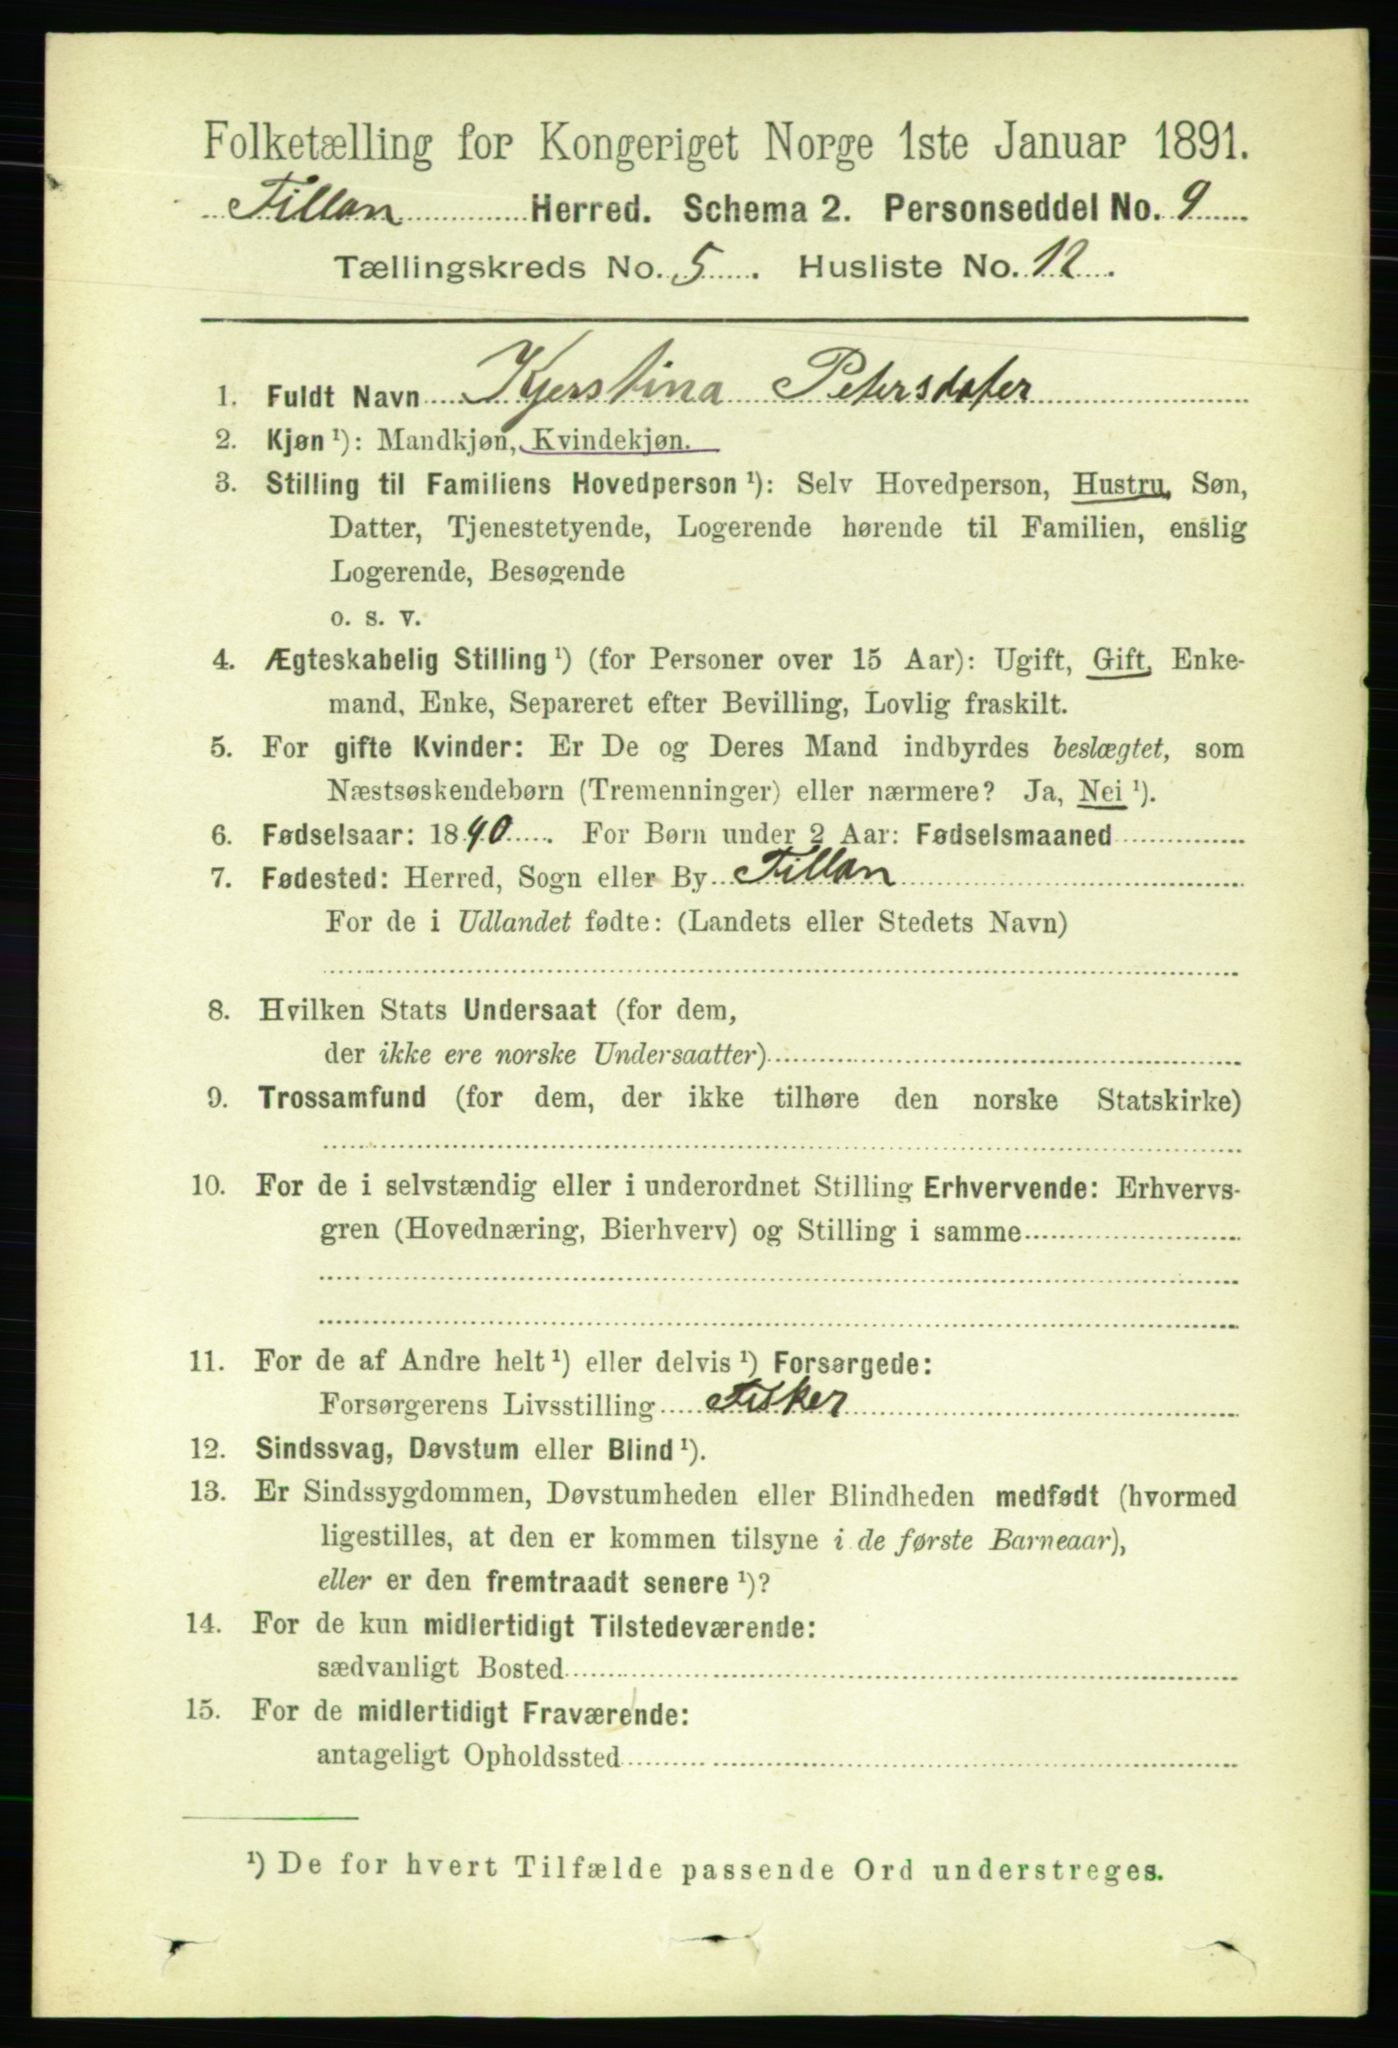 Folketælling for Kongeriget Norge 1ste Januar 1891.
Fillan Herred. Schema 2. Personseddel No. 9
Tællingskreds No. 5. Husliste No. 12.
1. Fuldt Navn Kjerstina Petersdater
2. Kjøn ¹): Mandkjøn, Kvindekjøn.
3. Stilling til Familiens Hovedperson ¹): Selv Hovedperson, Hustru, Søn,
Datter, Tjenestetyende, Logerende hørende til Familien, enslig
Logerende, Besøgende
o. s. v.
4. Ægteskabelig Stilling ¹) (for Personer over 15 Aar): Ugift, Gift, Enke-
mand, Enke, Separeret efter Bevilling, Lovlig fraskilt.
5. For gifte Kvinder: Er De og Deres Mand indbyrdes beslægtet, som
Næstsøskendebørn (Tremenninger) eller nærmere? Ja, Nei ¹).
6. Fødselsaar: 1840. For Børn under 2 Aar: Fødselsmaaned
7. Fødested: Herred, Sogn eller By Fillan
For de i Udlandet fødte: (Landets eller Stedets Navn)
8. Hvilken Stats Undersaat (for dem,
der ikke ere norske Undersaatter)
9. Trossamfund (for dem, der ikke tilhøre den norske Statskirke)
10. For de i selvstændig eller i underordnet Stilling Erhvervende: Erhvervs-
gren (Hovednæring, Bierhverv) og Stilling i samme
11. For de af Andre helt ¹) eller delvis ¹) Forsørgede:
Forsørgerens Livsstilling Fisker
12. Sindssvag, Døvstum eller Blind ¹).
13. Er Sindssygdommen, Døvstumheden eller Blindheden medfødt (hvormed
ligestilles, at den er kommen tilsyne i de første Barneaar),
eller er den fremtraadt senere ¹)?
14. For de kun midlertidigt Tilstedeværende:
sædvanligt Bosted
15. For de midlertidigt Fraværende:
antageligt Opholdssted
¹) De for hvert Tilfælde passende Ord understreges.